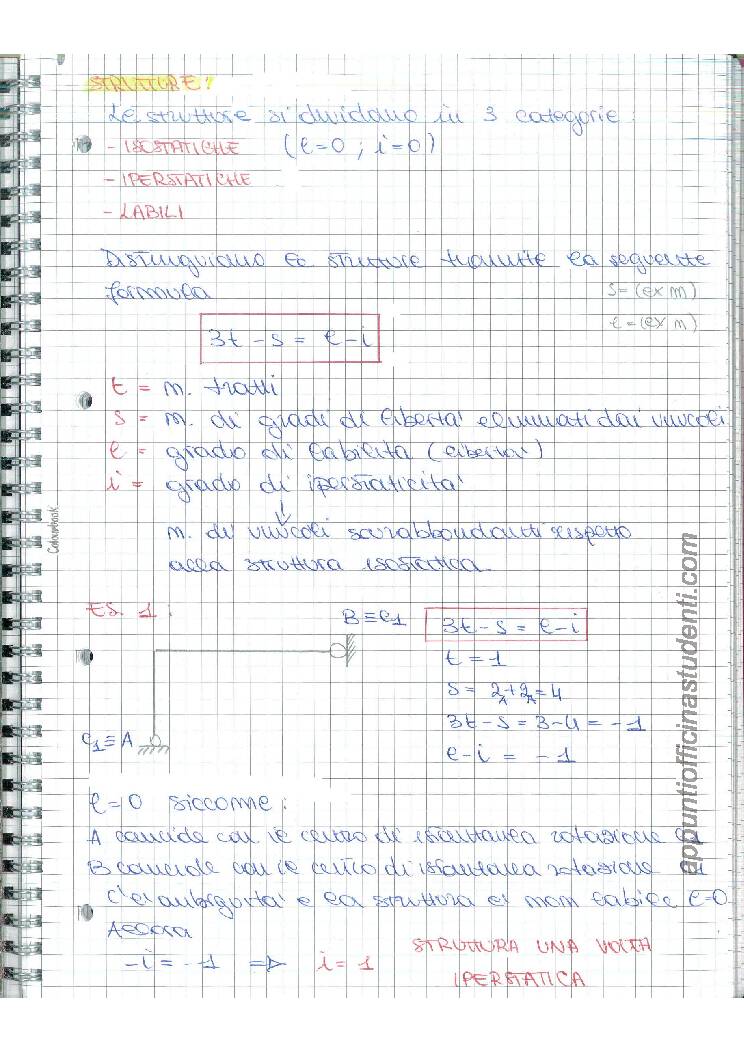 STRUTTURE:
Le strutture si dividono in 3 categorie:
- ISOSTATICHE (l=0 ; i=0)
- IPERSTATICHE
- LABILI
Distinguiamo le strutture tramite la seguente
formula
s=(ex m)
l=(ex m)
3t-s = l-i
t = n. tratti
s = n. di gradi di liberta' eliminati dai vincoli
l = grado di labilita (liberta')
i = grado di iperstaticita'
↓
n. di vincoli sovrabbondanti rispetto
alla struttura isostatica.
ES. 1:
B≡C1
C1≡A
3t-s = l-i
t = 1
s = 2A+2A = 4
3t-s = 3-4 = -1
l-i = -1
l=0 siccome:
A coincide con il centro di istantanea rotazione
B coincide con il centro di istantanea rotazione C1
C'e' ambiguita' e la struttura e' non labile l=0
Allora
-i = -1 => i = 1
STRUTTURA UNA VOLTA
IPERSTATICA
Colourbook
appuntiofficinastudenti.com